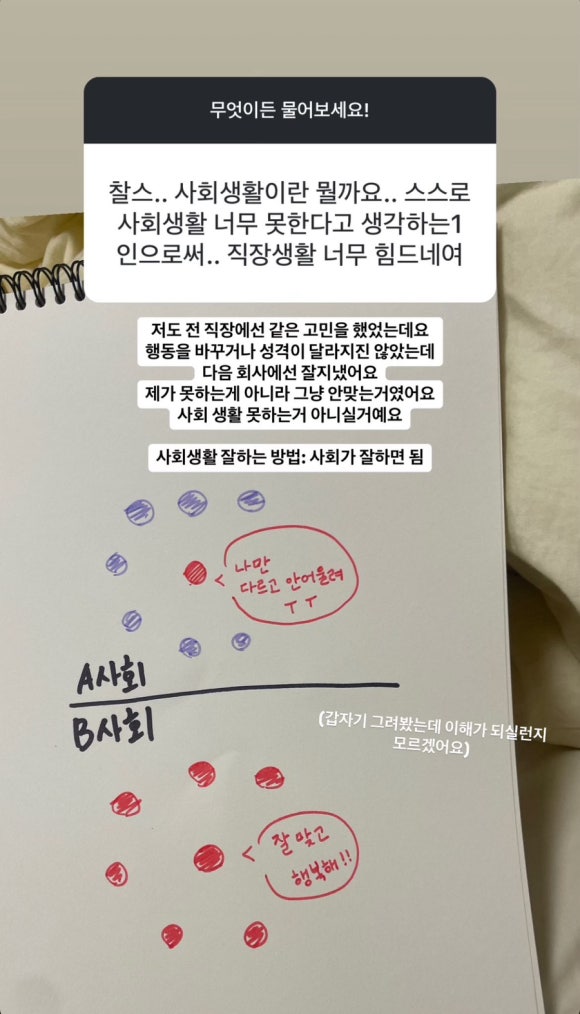 무엇이든 물어보세요!
찰스.. 사회생활이란 뭘까요.. 스스로
사회생활 너무 못한다고 생각하는1
인으로써.. 직장생활 너무 힘드네여
저도 전 직장에선 같은 고민을 했었는데요
행동을 바꾸거나 성격이 달라지진 않았는데
다음 회사에선 잘지냈어요
제가 못하는게 아니라 그냥 안맞는거였어요
사회 생활 못하는거 아니실거예요
사회생활 잘하는 방법: 사회가 잘하면 됨
나만
다르고 안어울려
ㅜㅜ
A사회
B사회
(갑자기 그려봤는데 이해가 되실런지
모르겠어요)
잘 맞고
행복해!!